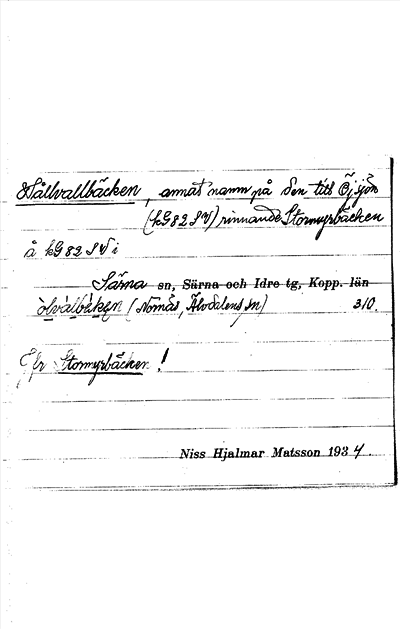 Hållvallbäcken, annat namn på den till Öjsjön
(kG82SV) rinnande Stormyrbäcken
å kG82SV i
Särna sn, Särna och Idre tg, Kopp. län
(Nornäs, Älvdalens sn) 310.
Jfr Stormyrbäcken!
Niss Hjalmar Matsson 1934.